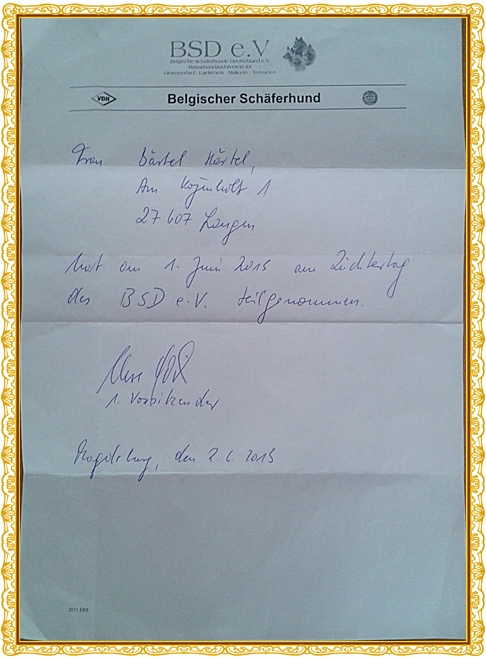 BSD e.V
Belgische Schäferhunde Deutschland e.V.
Rassehundzuchtverein für
Groenendael - Laekenois - Malinois - Tervueren
VDH
Belgischer Schäferhund
Frau Bärtel Härtel,
Am 1
27607 Langen
hat am 1. Juni 2013 am Züchtertag
des BSD e.V. teilgenommen.
1. Vorsitzender
Magdeburg, den 2.6.2013